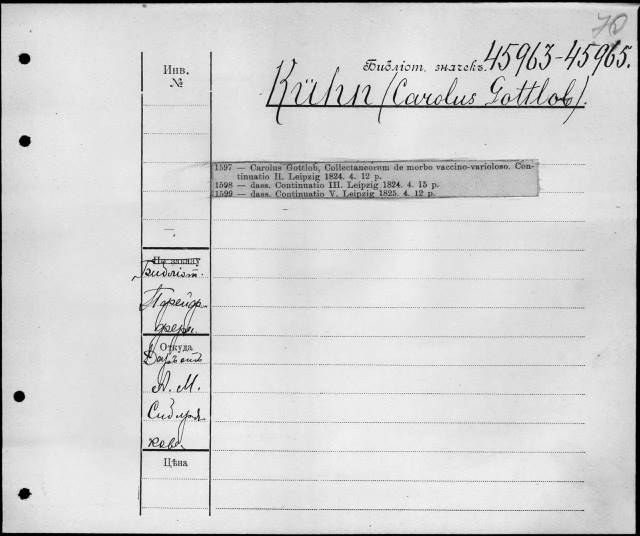 70
Библіот. значекъ. 45963-45965.
Инв.
№
Kühn (Carolus Gottlob).
1597 — Carolus Gottlob, Collectaneorum de morbo vaccino-varioloso. Con-
tinuatio II. Leipzig 1824. 4. 12 p.
1598 — dass. Continuatio III. Leipzig 1824. 4. 15 p.
1599 — dass. Continuatio V. Leipzig 1825. 4. 12 p.
По заказу
Библіот.
Откуда
А. М.
Сибиря
кова
Цѣна